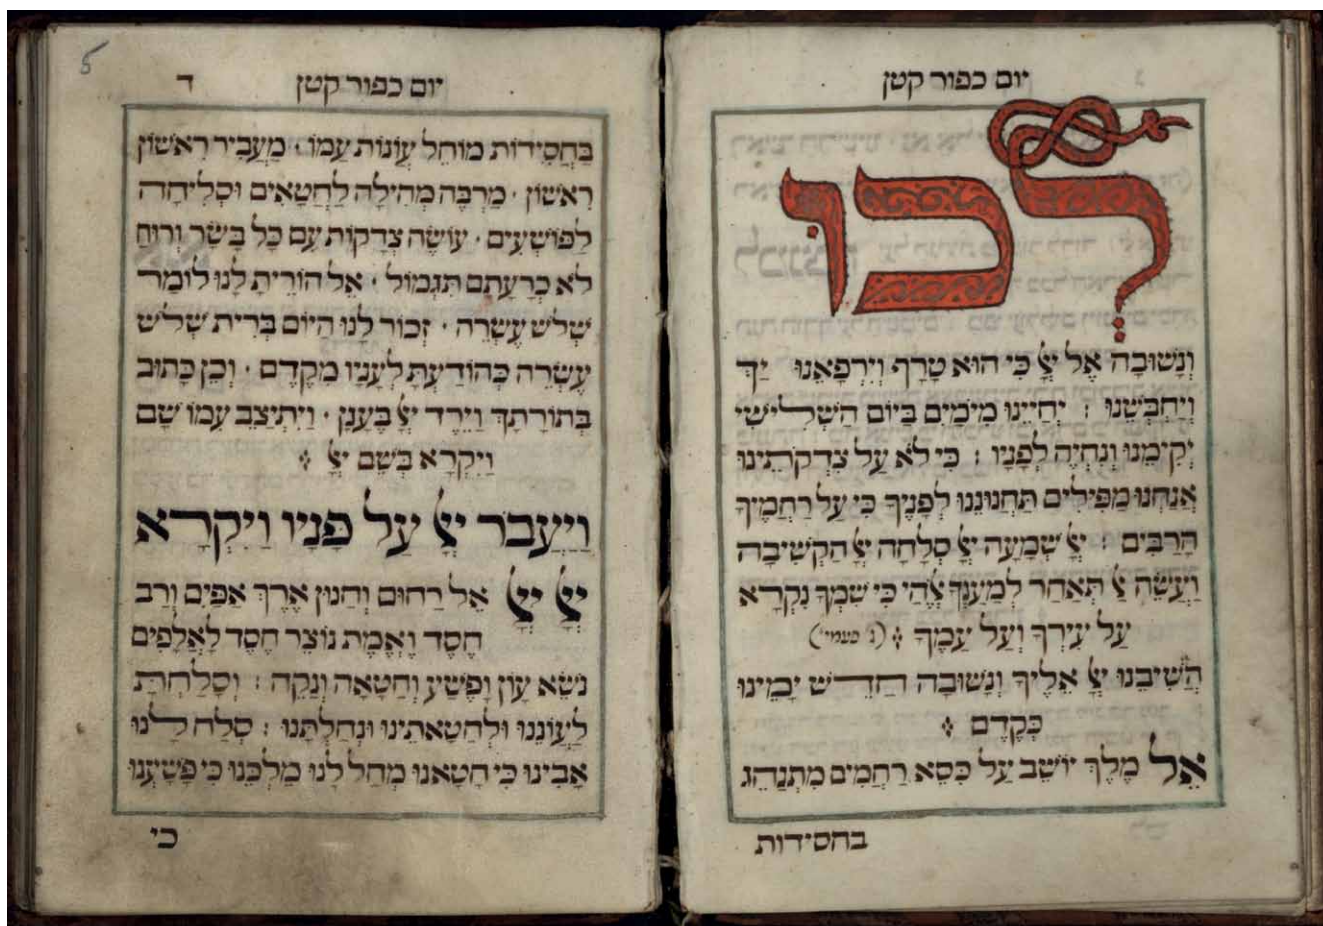 יום כפור קטן
לכו
וְנָשׁוּבָה אֶל יְיָ כִּי הוּא טָרָף וְיִרְפָּאֵנוּ יַךְ
וְיַחְבְּשֵׁנוּ : יְחַיֵּינוּ מִיֹּמָיִם בַּיּוֹם הַשְּׁלִישִׁי
יְקִימֵנוּ וְנִחְיֶה לְפָנָיו : כִּי לֹא עַל צִדְקֹתֵינוּ
אֲנַחְנוּ מַפִּילִים תַּחֲנוּנֵנוּ לְפָנֶיךָ כִּי עַל רַחֲמֶיךָ
הָרַבִּים : יְיָ שְׁמָעָה יְיָ סְלָחָה יְיָ הַקְשִׁיבָה
וַעֲשֵׂה אַ תְּאַחַר לְמַעַנְךָ אֱלֹהַי כִּי שִׁמְךָ נִקְרָא
עַל עִירְךָ וְעַל עַמֶּךָ : (ג פעמי')
הֲשִׁיבֵנוּ יְיָ אֵלֶיךָ וְנָשׁוּבָה חַדֵּשׁ יָמֵינוּ
כְּקֶדֶם :
אֵל מֶלֶךְ יוֹשֵׁב עַל כִּסֵּא רַחֲמִים מִתְנַהֵג
בחסידות
5
יום כפור קטן ד
בַּחֲסִידוּת מוֹחֵל עֲוֹנוֹת עַמּוֹ · מַעֲבִיר רִאשׁוֹן
רִאשׁוֹן · מַרְבֶּה מְחִילָה לַחַטָּאִים וּסְלִיחָה
לַפּוֹשְׁעִים · עוֹשֶׂה צְדָקוֹת עִם כָּל בָּשָׂר וְרוּחַ
לֹא כְרָעָתָם תִּגְמוֹל · אֵל הוֹרֵיתָ לָנוּ לוֹמַר
שְׁלֹשׁ עֶשְׂרֵה · זְכוֹר לָנוּ הַיּוֹם בְּרִית שְׁלֹשׁ
עֶשְׂרֵה כְּהוֹדַעְתָּ לֶעָנָיו מִקֶּדֶם · וְכֵן כָּתוּב
בְּתוֹרָתָךְ וַיֵּרֶד יְיָ בֶּעָנָן · וַיִּתְיַצֵּב עִמּוֹ שָׁם
וַיִּקְרָא בְּשֵׁם יְיָ :
וַיַּעֲבֹר יְיָ עַל פָּנָיו וַיִּקְרָא
יְיָ יְיָ אֵל רַחוּם וְחַנּוּן אֶרֶךְ אַפַּיִם וְרַב
חֶסֶד וֶאֱמֶת נוֹצֵר חֶסֶד לָאֲלָפִים
נֹשֵׂא עָוֹן וָפֶשַׁע וְחַטָּאָה וְנַקֵּה : וְסָלַחְתָּ
לַעֲוֹנֵנוּ וּלְחַטָּאתֵינוּ וּנְחַלְתָּנוּ : סְלַח לָנוּ
אָבִינוּ כִּי חָטָאנוּ מְחַל לָנוּ מַלְכֵּנוּ כִּי פָשָׁעְנוּ
כי